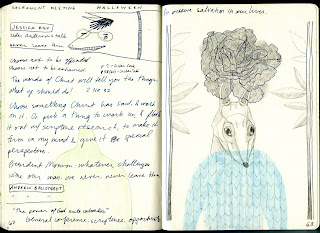 SACRAMENT MEETING HALLOWEEN
JESSICA
Elder Anderson's talk
never leave Him
Choose not to be offended
Choose not to be ashamed
The words of Christ will tell you the things
what ye should do! 2 Ne 32
Choose something Christ has said & work
on it. Or pick a thing to work on & flesh
it out w/ scripture research, to make it
firm in my mind & give it special
perspective.
President Monson: whatever challenges
come our way we never, never leave Him.
ANDREW
"The power of God with
General conference, scriptures, opportunity
62
to receive salvation in our lives.
63